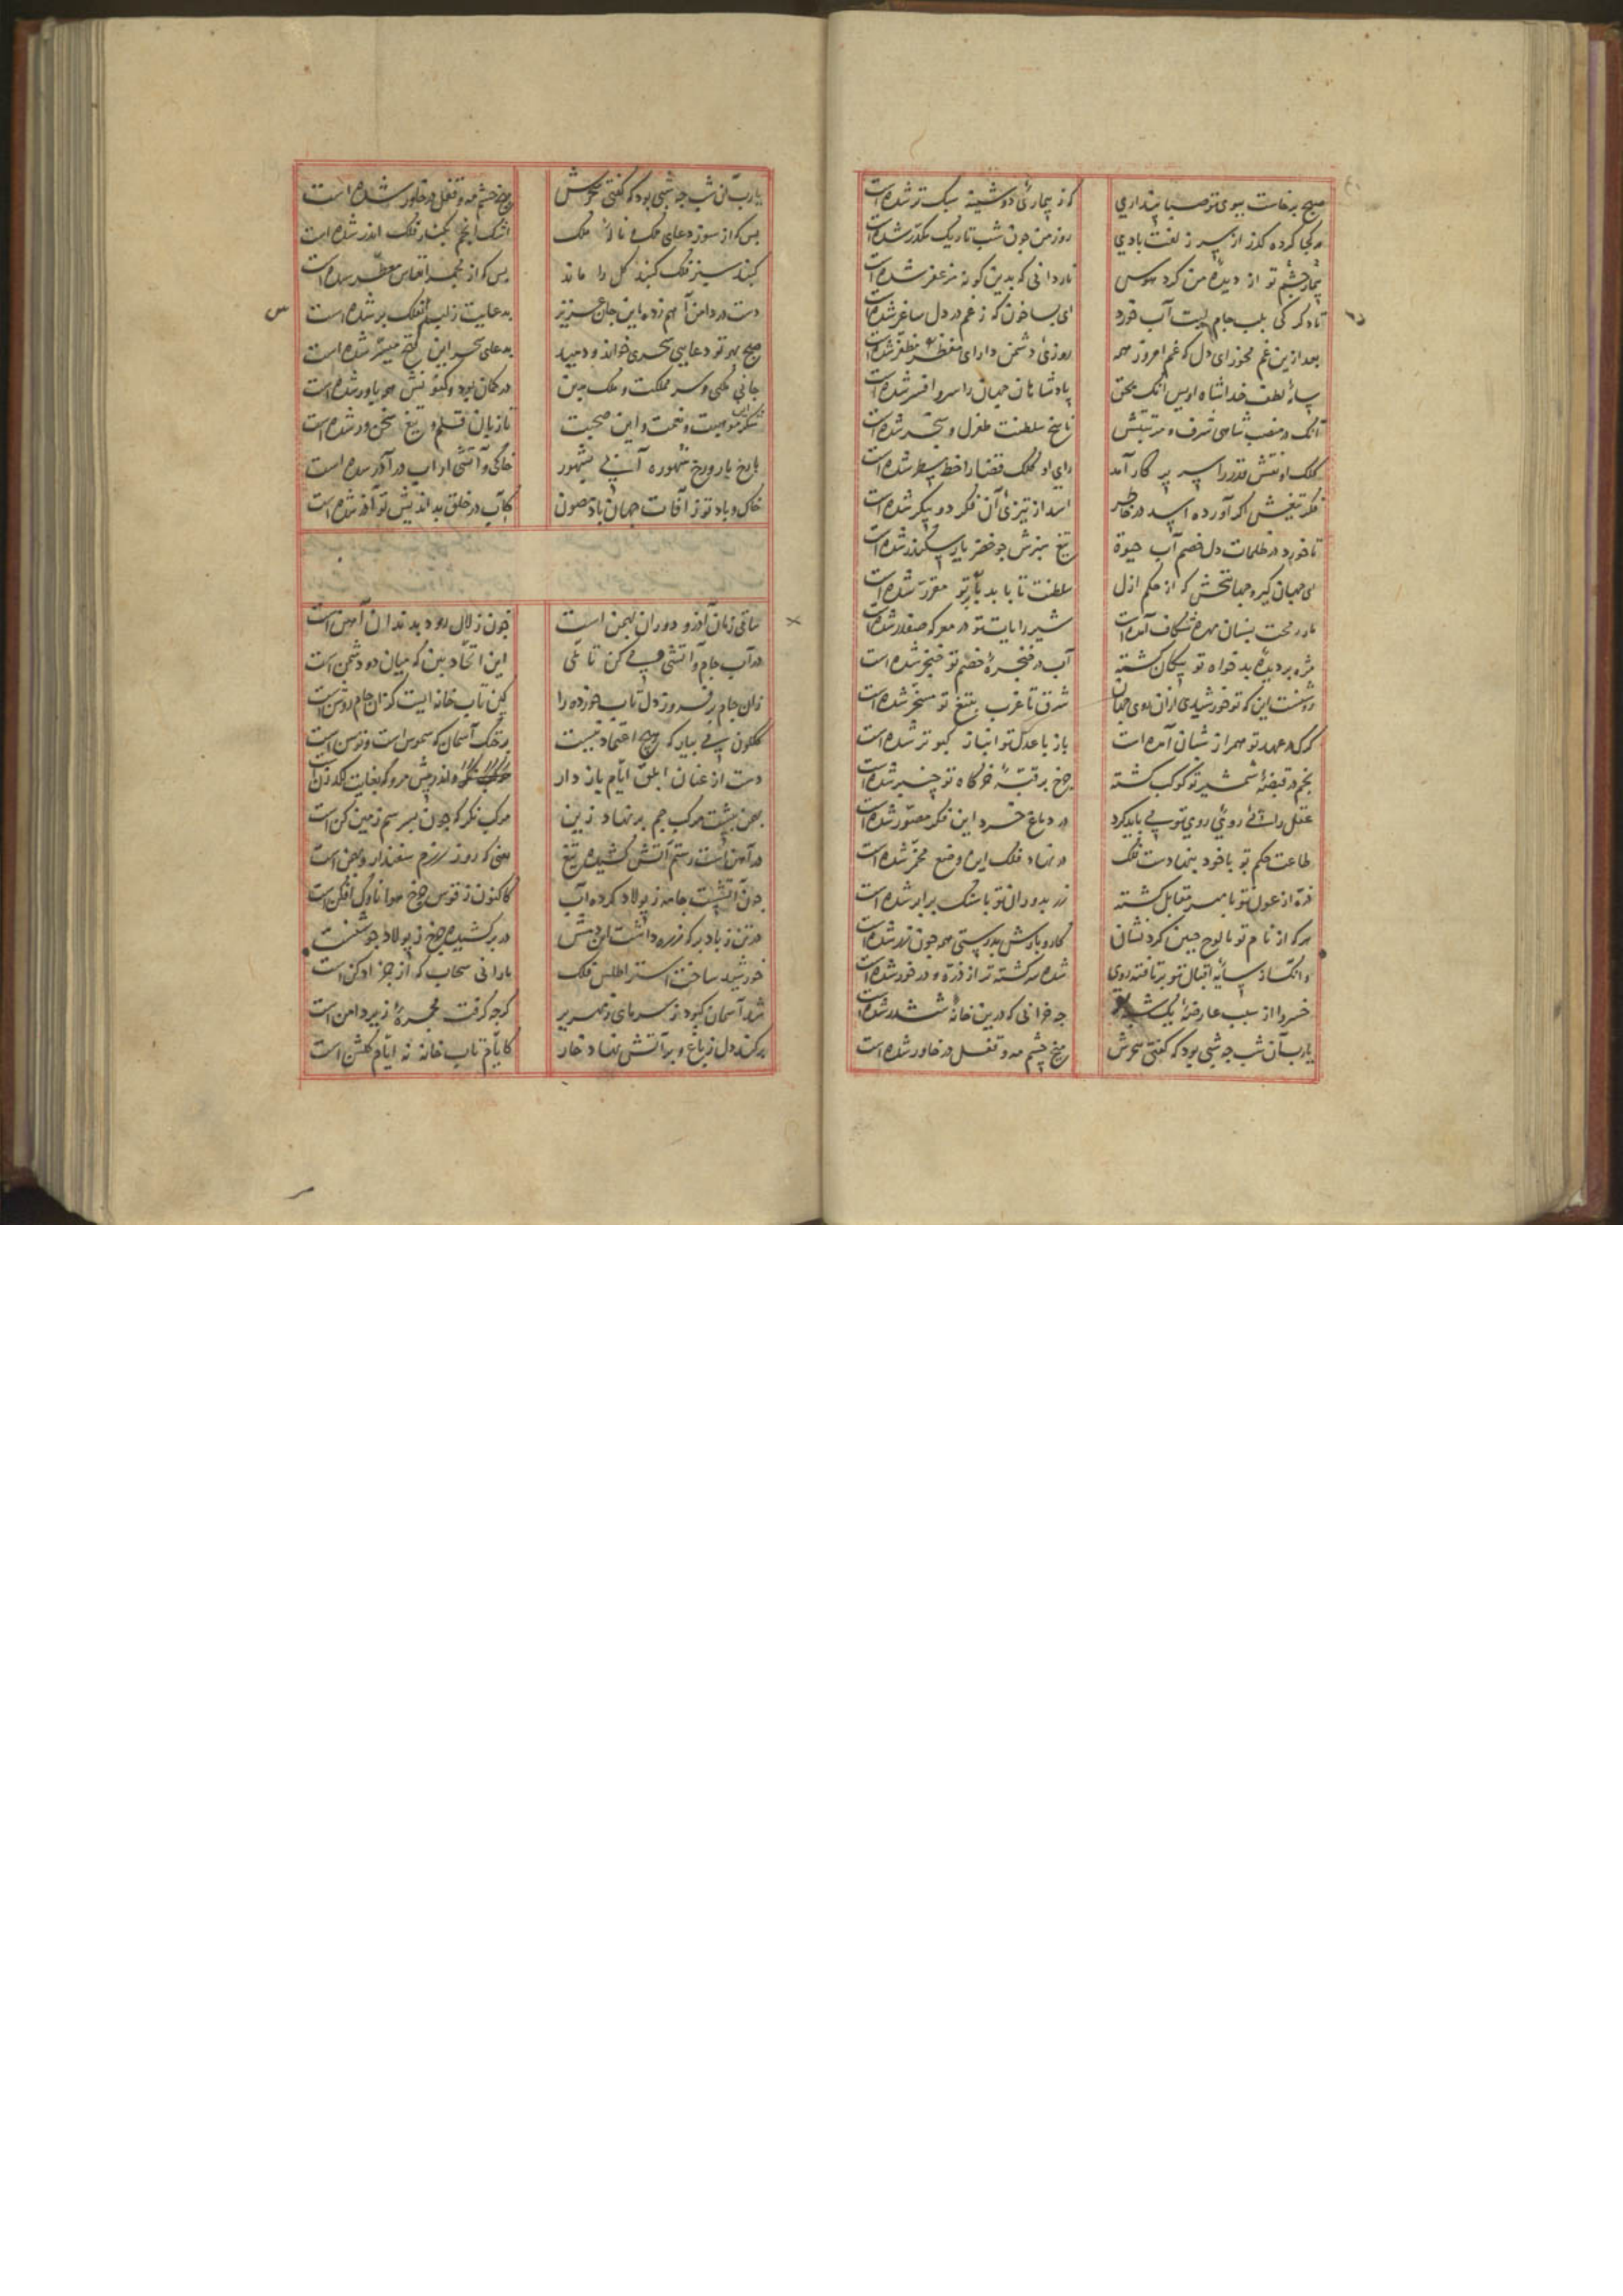 صبح برخاست ببوی تو صبا پنداری کز بیماری دوشینه سبک تر شده است
هر کجا کرده گذر از سر زلفت بادی روز من چون شب تاریک مکدر شده است
بیمار چشم تو از دیده من کرد هوس نار دانی که بدین گونه مزعفر شده است
تا دگر کی بلب جام لبت آب خورد ای بسا خون که ز غم در دل ساغر شده است
بعد ازین غم مخور ای دل که غم امروز همه روزی دشمن دارای مظفر شده است
سایه لطف خدا شاه اویس آنک بحق پادشاهان جهان را سر و افسر شده است
آنک در منصب شاهی شرف و مرتبتش ناسخ سلطنت طغرل و سنجر شده است
کلک او نقش قدر را سر پرگار آمد رای او کلک قضا را خط مسطر شده است
فکر تیغش اگر آورده اسد در خاطر اسد از تیزی آن فکر دو پیکر شده است
تا خورد در ظلمات دل خصم آب حیوة تیغ سبزش چو خضر یار سکندر شده است
ای جهان گیر و جهانبخش که از حکم ازل سلطنت تا بابد بر تو مقرر شده است
مار رمحت بسنان مهره شکاف آمده است شیر رایات تو در معرکه صفدر شده است
مژه بر دیده بدخواه تو پیکان گشته آب در حنجره خصم تو خنجر شده است
روشنست این که تو خورشیدی از آن روی جهان شرق تا غرب بتیغ تو مسخر شده است
گرگ در عهد تو همراز شبان آمده است باز با عدل تو انباز کبوتر شده است
نجم در قبضه شمشیر تو کوکب گشته چرخ بر قبه خرگاه تو چنبر شده است
عقل را روی تو می باید کرد در دماغ خرد این فکر مصور شده است
طاعت حکم تو با خود بنهادست فلک در نهاد فلک این وضع مخمر شده است
ذره از عون تو با مهر مقابل گشته زر بدوران تو با سنگ برابر شده است
هر که از نام تو بر لوح جبین کرد نشان کار و بارش بدرستی همه چون زر شده است
وانک از سایه اقبال تو بر تافته روی شده سرگشته تر از ذره و در خور شده است
خسروا از سبب عارضه یک شبه چه خرابی که درین خانه ششدر شده است
یا رب آن شب چه شبی بود که گفتی سحرش میخ چشم مه و قفل در خاور شده است
یا رب آن شب چه شبی بود که گفتی سحرش میخ چشم مه و قفل در خاور شده است
بس که از سوز دعای ملک و ناله ملک اشک انجم بکنار فلک اندر شده است
گنبد سبز فلک گنبد گل را ماند بس که از مجمر انفاس معطر شده است
دست در دامن آهم زده این جان عزیز بدعایت ز لبم بر فلک بر شده است
صبح بهر تو دعایی سحری خواند و دمید بدعای سحر این فتح میسر شده است
جانی ملکی و سر مملکت و ملک بدین
شکر این موهبت و نعمت و این صحبت تا زبان قلم و تیغ سخن ور شده است
خاک و باد تو ز آفات جهان باد مصون کآب در حلق بد اندیش تو آذر شده است
ساقی زمان آذر و دوران بهمن است خون زلال رود بدندان آهن است
در آب جام و آتش می کن تاملی این اتحاد بین که میان دو دشمن است
زان جام بر فروز دل تاب خورده را کین تابخانه ایست کز آن جام روشن است
گلگون می بیار که هیچ اعتماد نیست بر خنگ آسمان که شموس است و توسن است
دست از عنان ابلق ایام باز دار
بهمن بپشت مرکب جم بر نهاد زین مرکب نگر که چون بسر سم زمین کن است
در آهنست رستم آتش کشیده تیغ یعنی که روز رزم سفندار و بهمن است
چون آتشست جامه ز پولاد کرده آب کاکنون ز قوس چرخ هوا ناوک افکن است
خورشید ساختست استر اطلس فلک بارانی سحاب که از خز ادکن است
شد آسمان کبود ز سرمای زمهریر گرچه گرفت مجمره زیر دامن است
بر کند دل ز باغ و بر آتش نهاد خار کایام تاب خانه نه ایام گلشن است